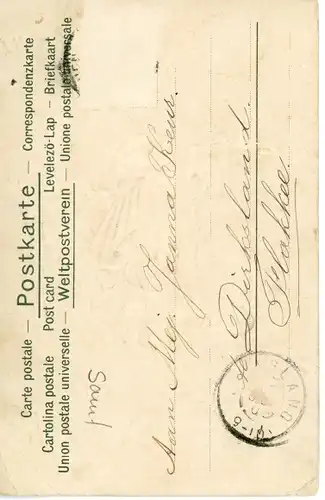 Carte postale — Postkarte — Correspondenzkarte
Cartolina postale Post card Levelezö-Lap — Briefkaart
Union postale universelle — Weltpostverein — Unione postale universale
Aan Mej. Janna
Dirksland.
Flakkee.